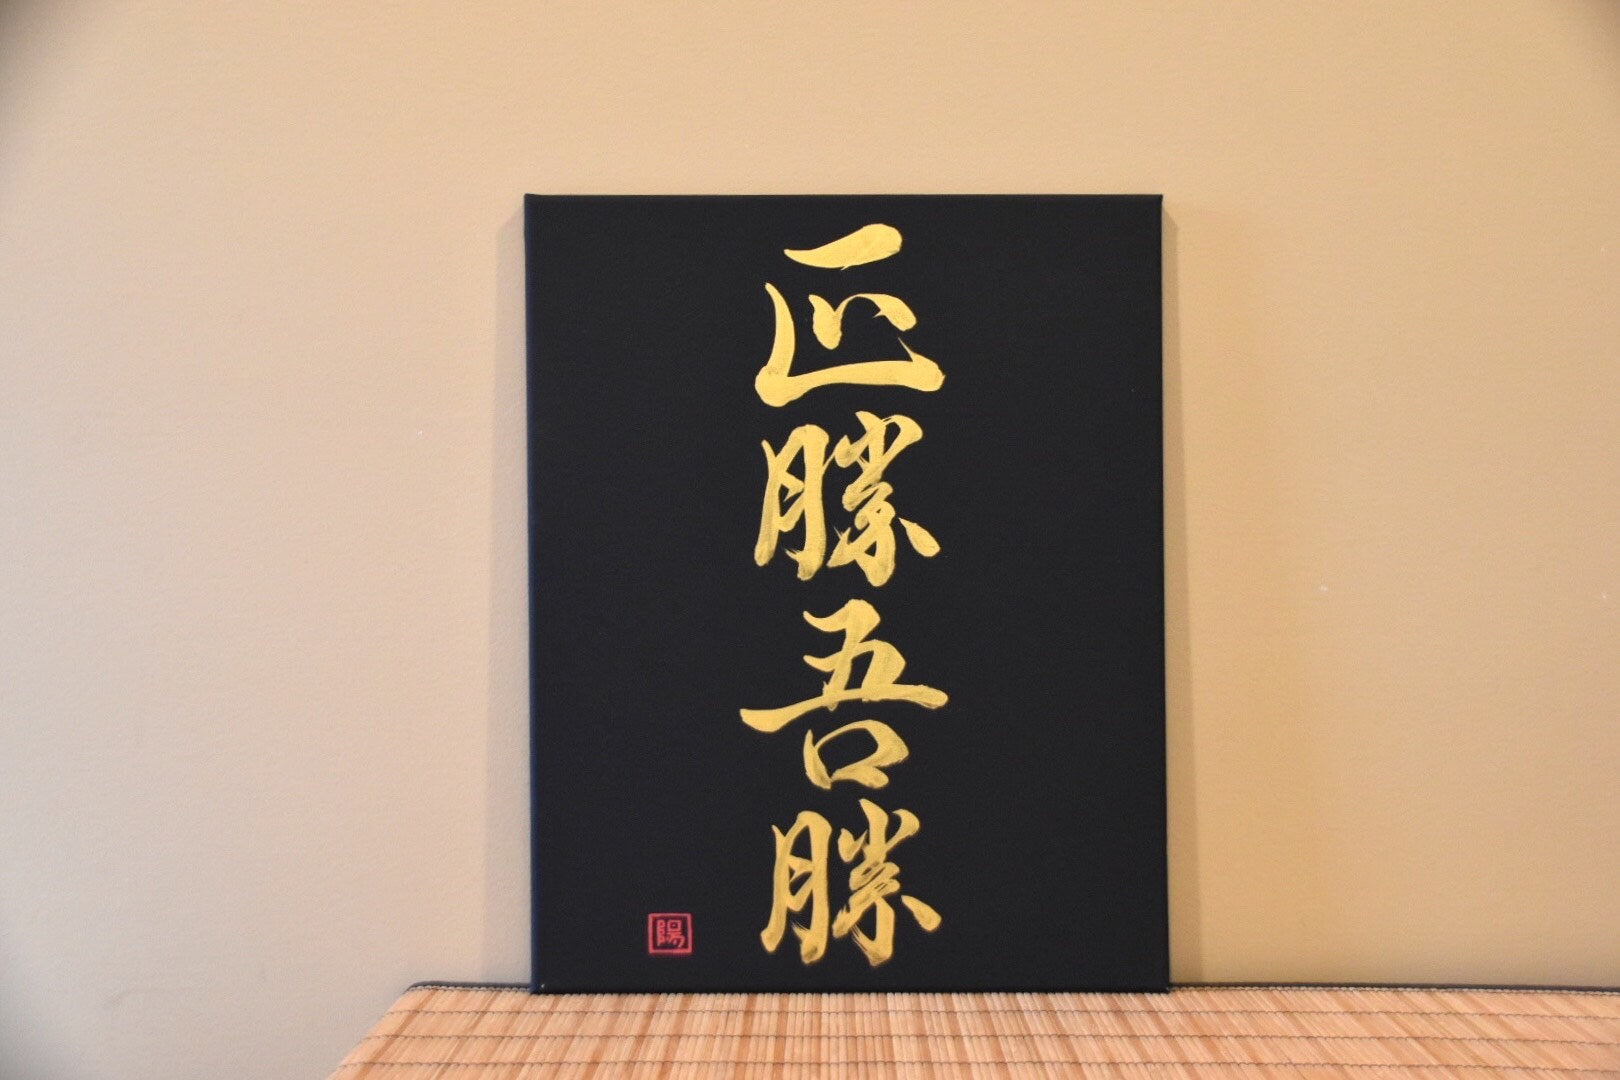 正勝吾勝
陽